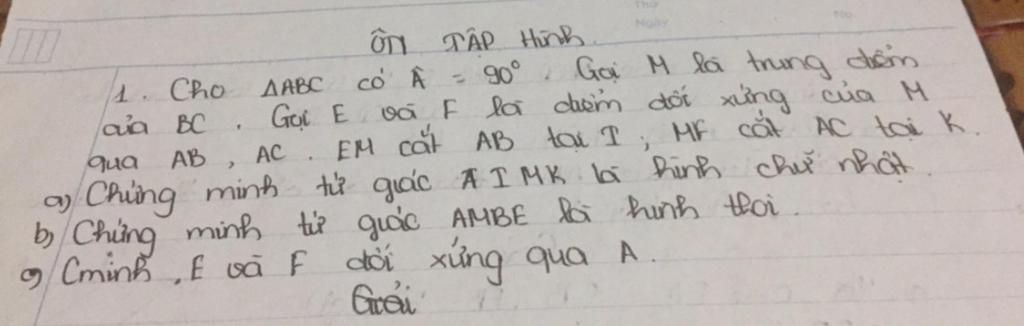 Thứ
Ngày
No.
ÔN TẬP Hình.
1. Cho ΔABC có Â = 90°. Gọi M là trung điểm
của BC. Gọi E và F là điểm đối xứng của M
qua AB, AC. EM cắt AB tại I, MF cắt AC tại K.
a) Chứng minh tứ giác AIMK là hình chữ nhật.
b) Chứng minh tứ giác AMBE là hình thoi.
c) Cminh, E và F đối xứng qua A.
Giải